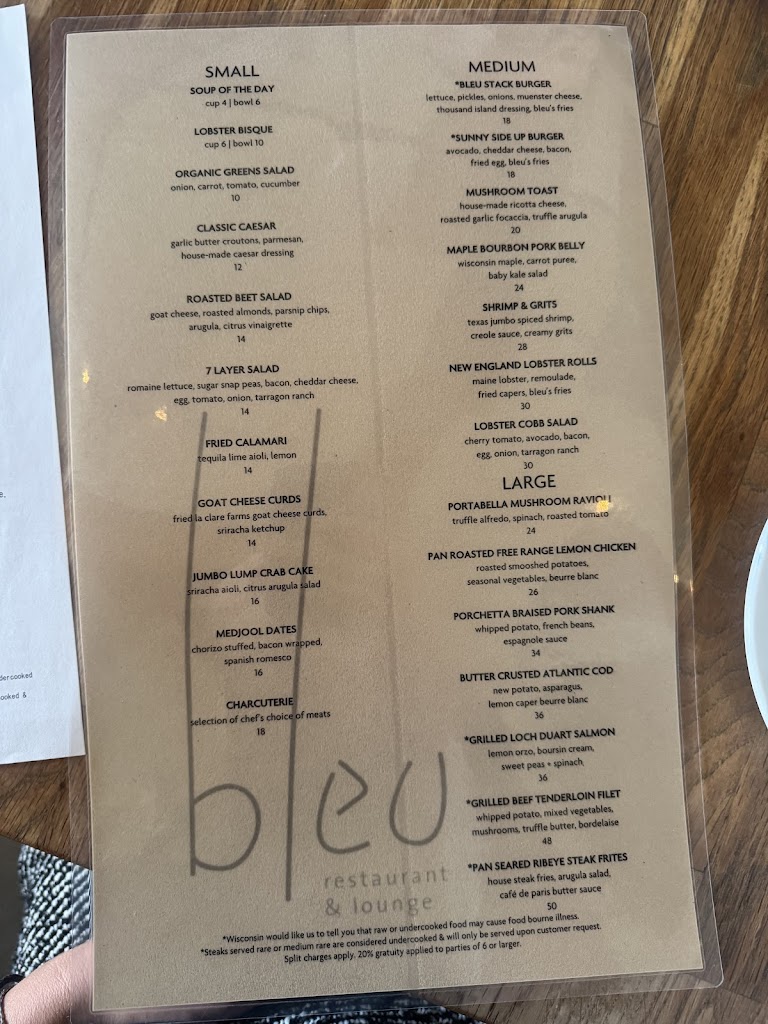 SMALL
SOUP OF THE DAY
cup 4 | bowl 6
LOBSTER BISQUE
cup 6 | bowl 10
ORGANIC GREENS SALAD
onion, carrot, tomato, cucumber
10
CLASSIC CAESAR
garlic butter croutons, parmesan,
house-made caesar dressing
12
ROASTED BEET SALAD
goat cheese, roasted almonds, parsnip chips,
arugula, citrus vinaigrette
14
7 LAYER SALAD
romaine lettuce, sugar snap peas, bacon, cheddar cheese,
egg, tomato, onion, tarragon ranch
14
FRIED CALAMARI
tequila lime aioli, lemon
14
GOAT CHEESE CURDS
fried la clare farms goat cheese curds,
sriracha ketchup
14
JUMBO LUMP CRAB CAKE
sriracha aioli, citrus arugula salad
16
MEDJOOL DATES
chorizo stuffed, bacon wrapped,
spanish romesco
16
CHARCUTERIE
selection of chef's choice of meats
18
MEDIUM
*BLEU STACK BURGER
lettuce, pickles, onions, muenster cheese,
thousand island dressing, bleu's fries
18
*SUNNY SIDE UP BURGER
avocado, cheddar cheese, bacon,
fried egg, bleu's fries
18
MUSHROOM TOAST
house-made ricotta cheese,
roasted garlic focaccia, truffle arugula
20
MAPLE BOURBON PORK BELLY
wisconsin maple, carrot puree,
baby kale salad
24
SHRIMP & GRITS
texas jumbo spiced shrimp,
creole sauce, creamy grits
28
NEW ENGLAND LOBSTER ROLLS
maine lobster, remoulade,
fried capers, bleu's fries
30
LOBSTER COBB SALAD
cherry tomato, avocado, bacon,
egg, onion, tarragon ranch
30
LARGE
PORTABELLA MUSHROOM RAVIOLI
truffle alfredo, spinach, roasted tomato
24
PAN ROASTED FREE RANGE LEMON CHICKEN
roasted smooshed potatoes,
seasonal vegetables, beurre blanc
26
PORCHETTA BRAISED PORK SHANK
whipped potato, french beans,
espagnole sauce
34
BUTTER CRUSTED ATLANTIC COD
new potato, asparagus,
lemon caper beurre blanc
36
*GRILLED LOCH DUART SALMON
lemon orzo, boursin cream,
sweet peas + spinach
36
*GRILLED BEEF TENDERLOIN FILET
whipped potato, mixed vegetables,
mushrooms, truffle butter, bordelaise
48
*PAN SEARED RIBEYE STEAK FRITES
house steak fries, arugula salad,
café de paris butter sauce
50
bleu
restaurant
& lounge
*Wisconsin would like us to tell you that raw or undercooked food may cause food bourne illness.
*Steaks served rare or medium rare are considered undercooked & will only be served upon customer request.
Split charges apply. 20% gratuity applied to parties of 6 or larger.